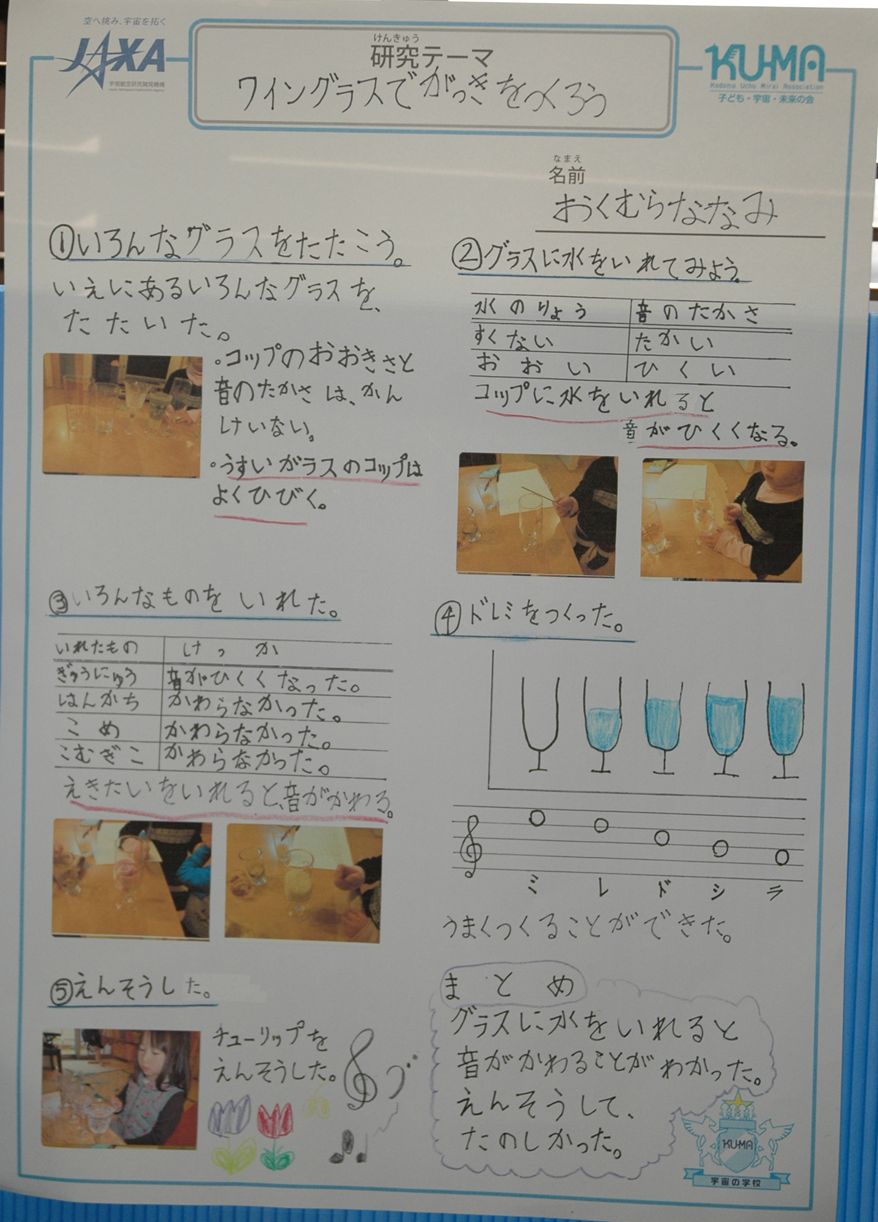 空へ挑み、宇宙を拓く
JAXA
宇宙航空研究開発機構
けんきゅう
研究テーマ
ワイングラスでがっきをつくろう
KU-MA
Kodomo Uchu Mirai Association
子ども・宇宙・未来の会
なまえ
名前
おくむらななみ
①いろんなグラスをたたこう。
いえにあるいろんなグラスを、
たたいた。
・コップのおおきさと
音のたかさは、かん
けいない。
・うすいガラスのコップは
よくひびく。
②グラスに水をいれてみよう。
水のりょう 音のたかさ
すくない たかい
おおい ひくい
コップに水をいれると
音がひくくなる。
③いろんなものをいれた。
いれたもの けっか
ぎゅうにゅう 音がひくくなった。
はんかち かわらなかった。
こめ かわらなかった。
こむぎこ かわらなかった。
えきたいをいれると、音がかわる。
④ドレミをつくった。
ミ レ ド シ ラ
うまくつくることができた。
⑤えんそうした。
チューリップを
えんそうした。
まとめ
グラスに水をいれると
音がかわることがわかった。
えんそうして、
たのしかった。
KU-MA
宇宙の学校